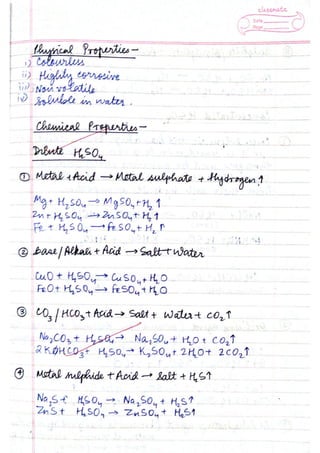 classmate
Date
Page
Physical Properties —
i) Colourless
ii) Highly corrosive
iii) Non volatile
iv) Soluble in water.
Chemical Properties —
Dilute H₂SO₄
① Metal + Acid → Metal sulphate + Hydrogen ↑
Mg + H₂SO₄ → MgSO₄ + H₂ ↑
Zn + H₂SO₄ → ZnSO₄ + H₂ ↑
Fe + H₂SO₄ → FeSO₄ + H₂ ↑
② Base / Alkali + Acid → Salt + Water
CuO + H₂SO₄ → CuSO₄ + H₂O
FeO + H₂SO₄ → FeSO₄ + H₂O
③ CO₃ / HCO₃ + Acid → Salt + Water + CO₂ ↑
Na₂CO₃ + H₂SO₄ → Na₂SO₄ + H₂O + CO₂ ↑
2KHCO₃ + H₂SO₄ → K₂SO₄ + 2H₂O + 2CO₂ ↑
④ Metal sulphide + Acid → Salt + H₂S ↑
Na₂S + H₂SO₄ → Na₂SO₄ + H₂S ↑
ZnS + H₂SO₄ → ZnSO₄ + H₂S ↑